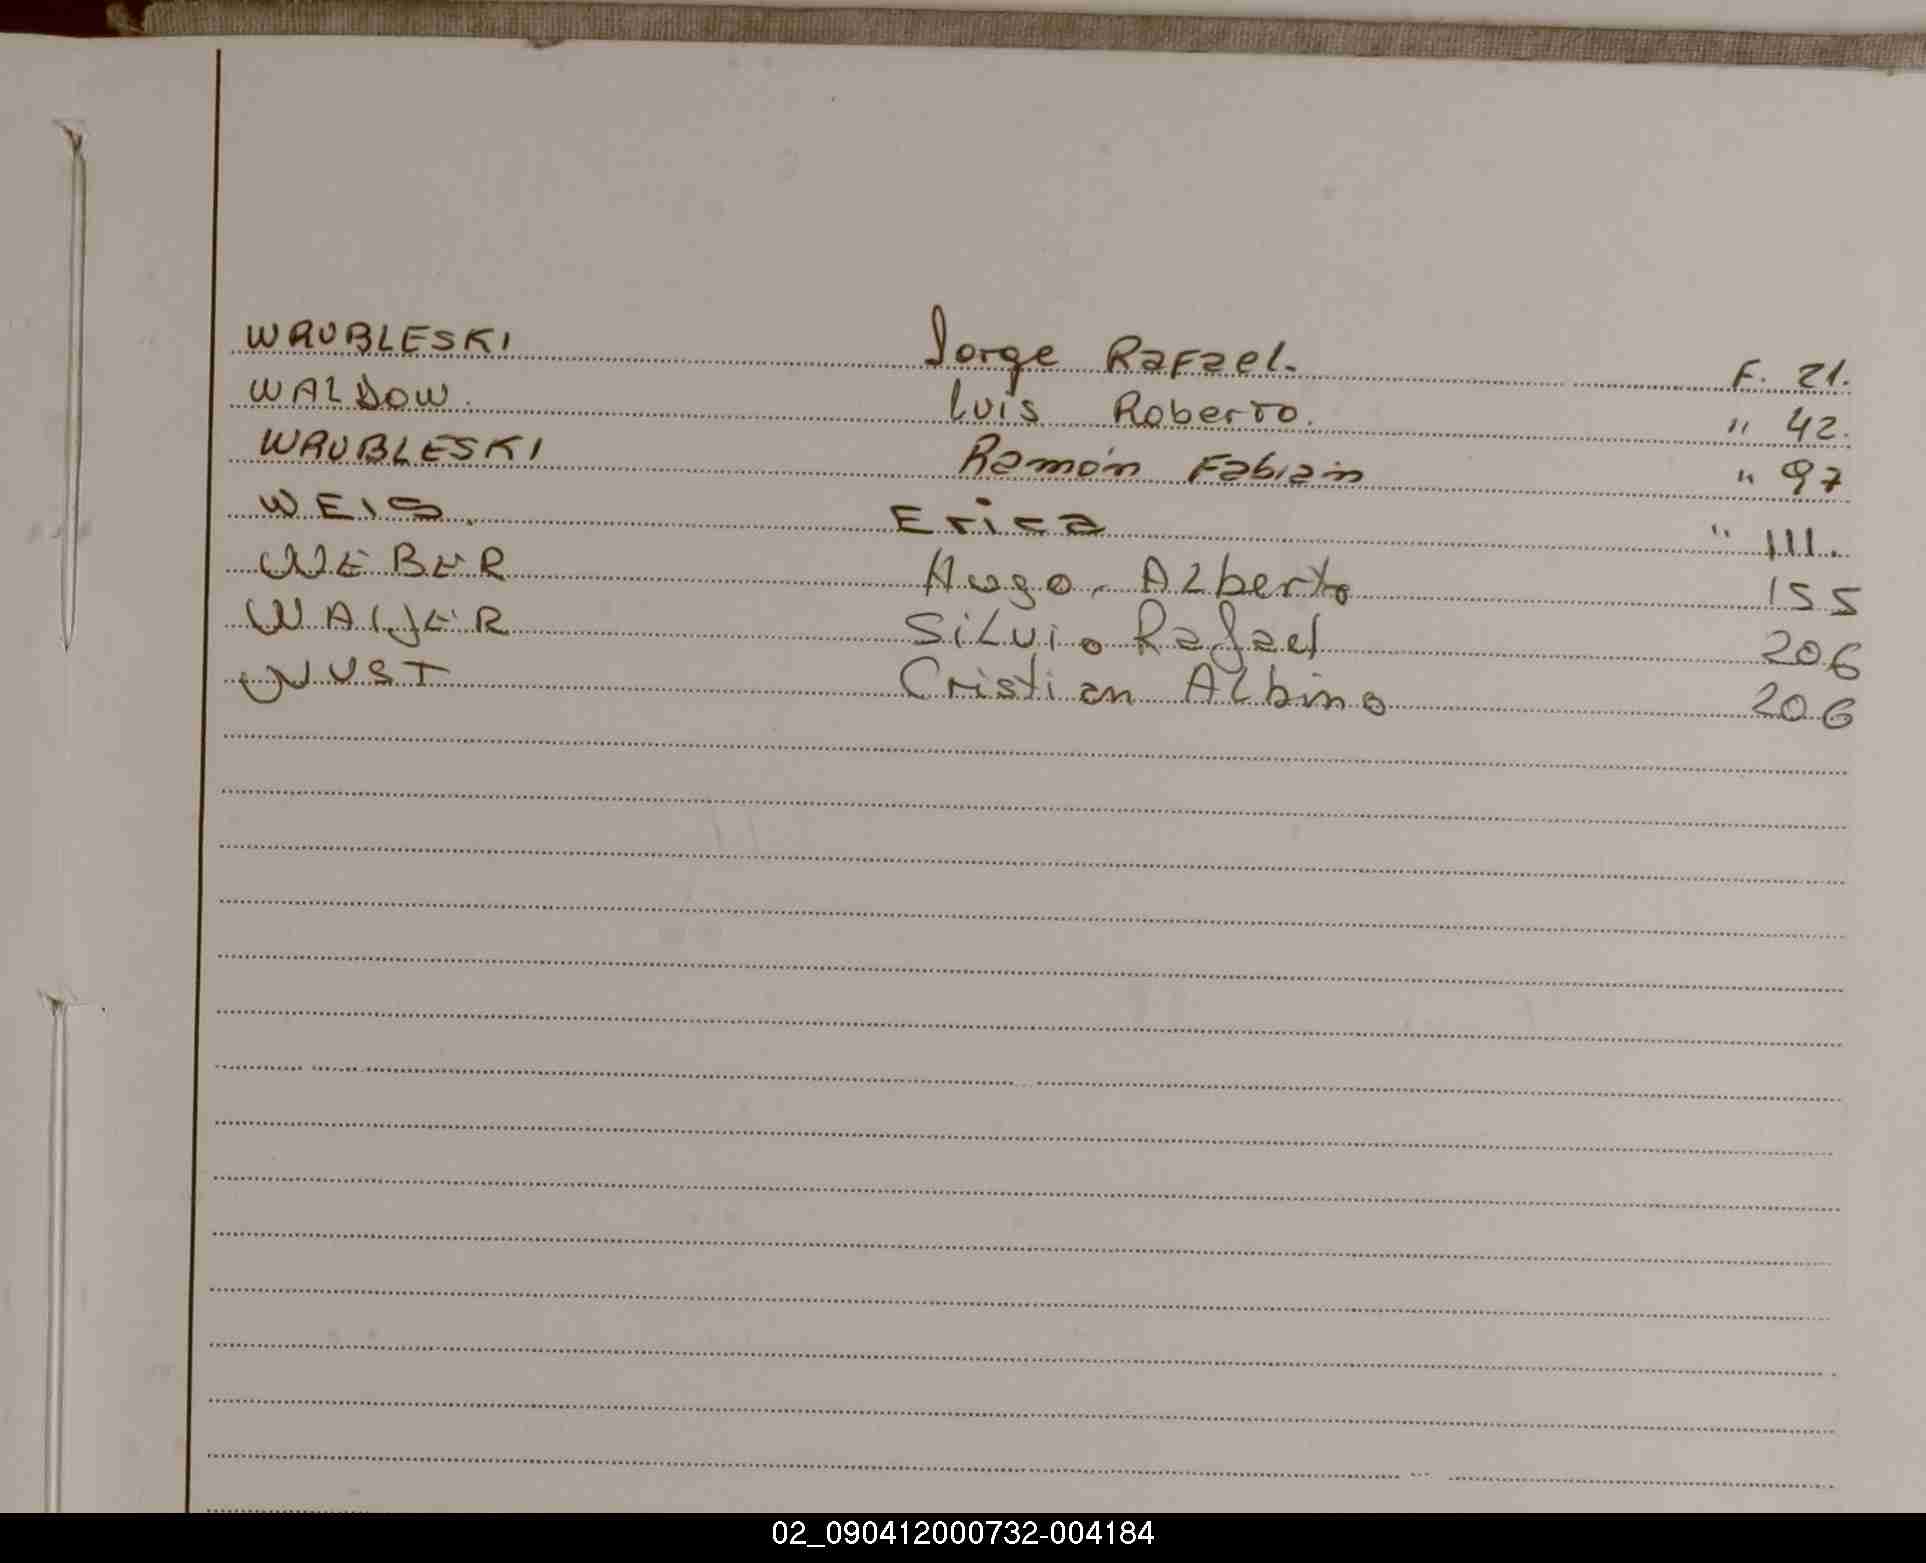 WRUBLESKI Jorge Rafael. F. 21.
WALDOW. Luis Roberto. " 42.
WRUBLESKI Ramón Fabián " 97
WEIS. Erica " 111.
WEBER Hugo Alberto 155
WAIJER Silvio Rafael 206
WUST Cristian Albino 206
02_090412000732-004184